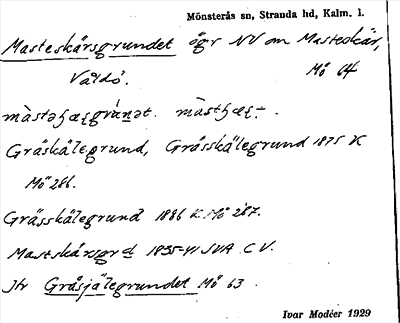 Mönsterås sn, Stranda hd, Kalm. l.
Masteskärsgrundet ögr NV om Masteskär,
Valdö. Mö 64
Gräskälegrund, Grässkälegrund 1875 K
Mö 286.
Grässkälegrund 1886 K Mö 287.
Mastskärsgrd 1835-41 JVA C V.
Jfr Gråsjälegrundet Mö 63.
Ivar Modéer 1929